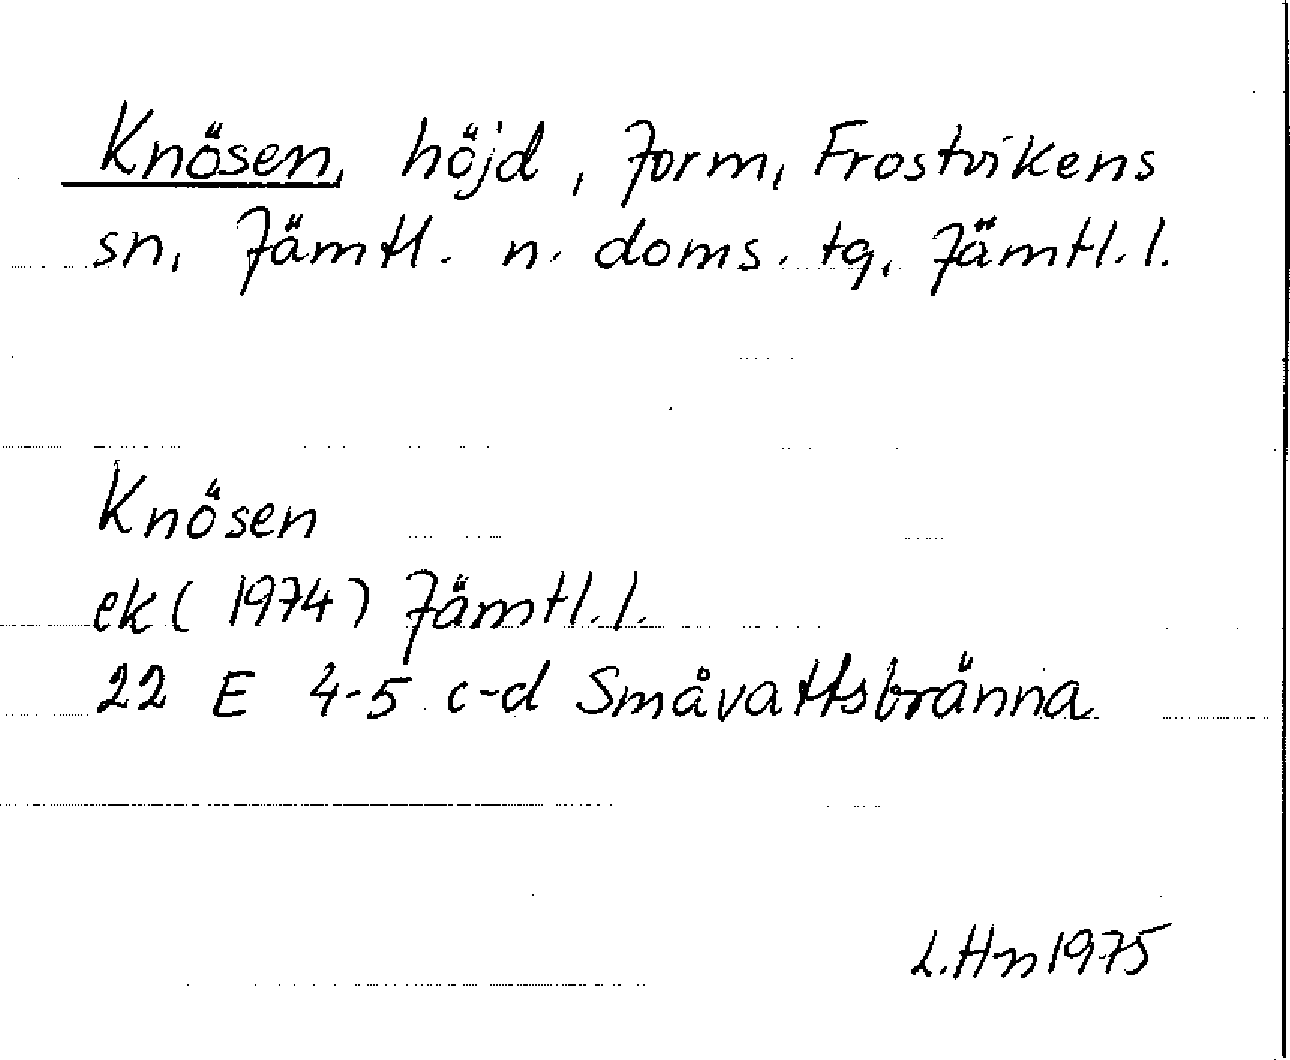 Knösen, höjd, Jorm, Frostvikens
sn, Jämtl. n. doms. tg, Jämtl. l.
Knösen
ek (1974) Jämtl. l.
22 E 4-5 c-d Småvattsbränna
L. Hn 1975